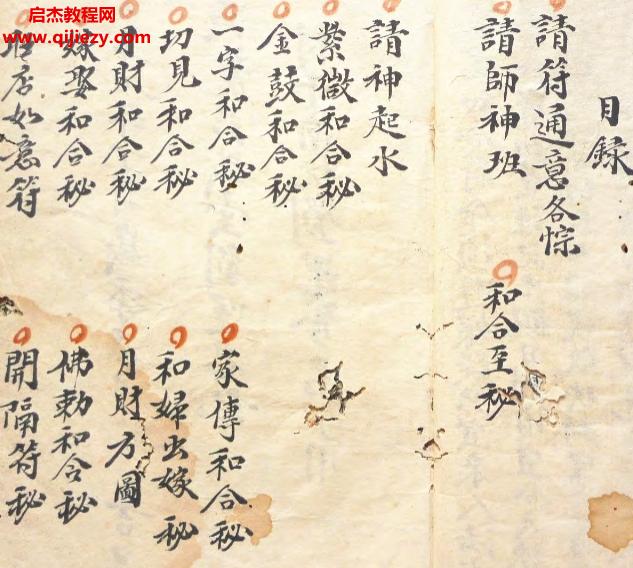 启杰教程网
www.qiliezy.com
目錄
請符通意各悰
請師神班
和合至秘
請神起水
紫微和合秘
金鼓和合秘
一字和合秘
切見和合秘
月財和合秘
嫁娶和合秘
店如意符
家傳和合秘
和婦出嫁秘
月財方圖
佛勅和合秘
開隔符秘